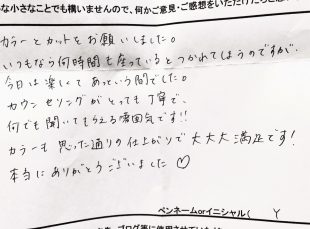 な小さなことでも構いませんので、何かご意見・ご感想をいただけたら
カラーとカットをお願いしました。
いつもなら何時間も座っているとつかれてしまうのですが、
今日は楽しくてあっという間でした。
カウンセリングがとっても丁寧で、
何でも聞いてもらえる雰囲気です!!
カラーも思った通りの仕上がりで大大大満足です!
本当にありがとうございました♡
ペンネームorイニシャル( Y
ブログ等に使用させていただ